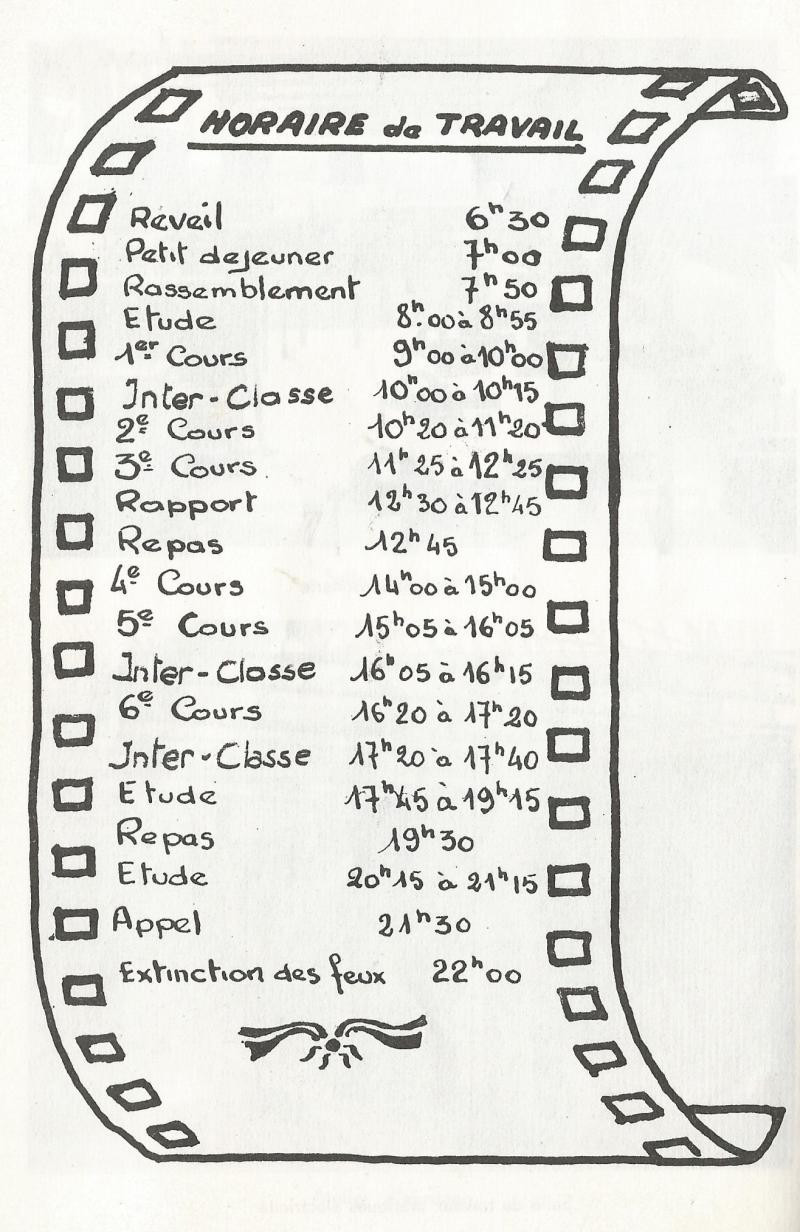 HORAIRE de TRAVAIL
Réveil 6h30
Petit dejeuner 7h00
Rassemblement 7h50
Etude 8h00 à 8h55
1er Cours 9h00 à 10h00
Inter-Classe 10h00 à 10h15
2e Cours 10h20 à 11h20
3e Cours 11h25 à 12h25
Rapport 12h30 à 12h45
Repas 12h45
4e Cours 14h00 à 15h00
5e Cours 15h05 à 16h05
Inter-Classe 16h05 à 16h15
6e Cours 16h20 à 17h20
Inter-Classe 17h20 à 17h40
Etude 17h45 à 19h15
Repas 19h30
Etude 20h15 à 21h15
Appel 21h30
Extinction des feux 22h00